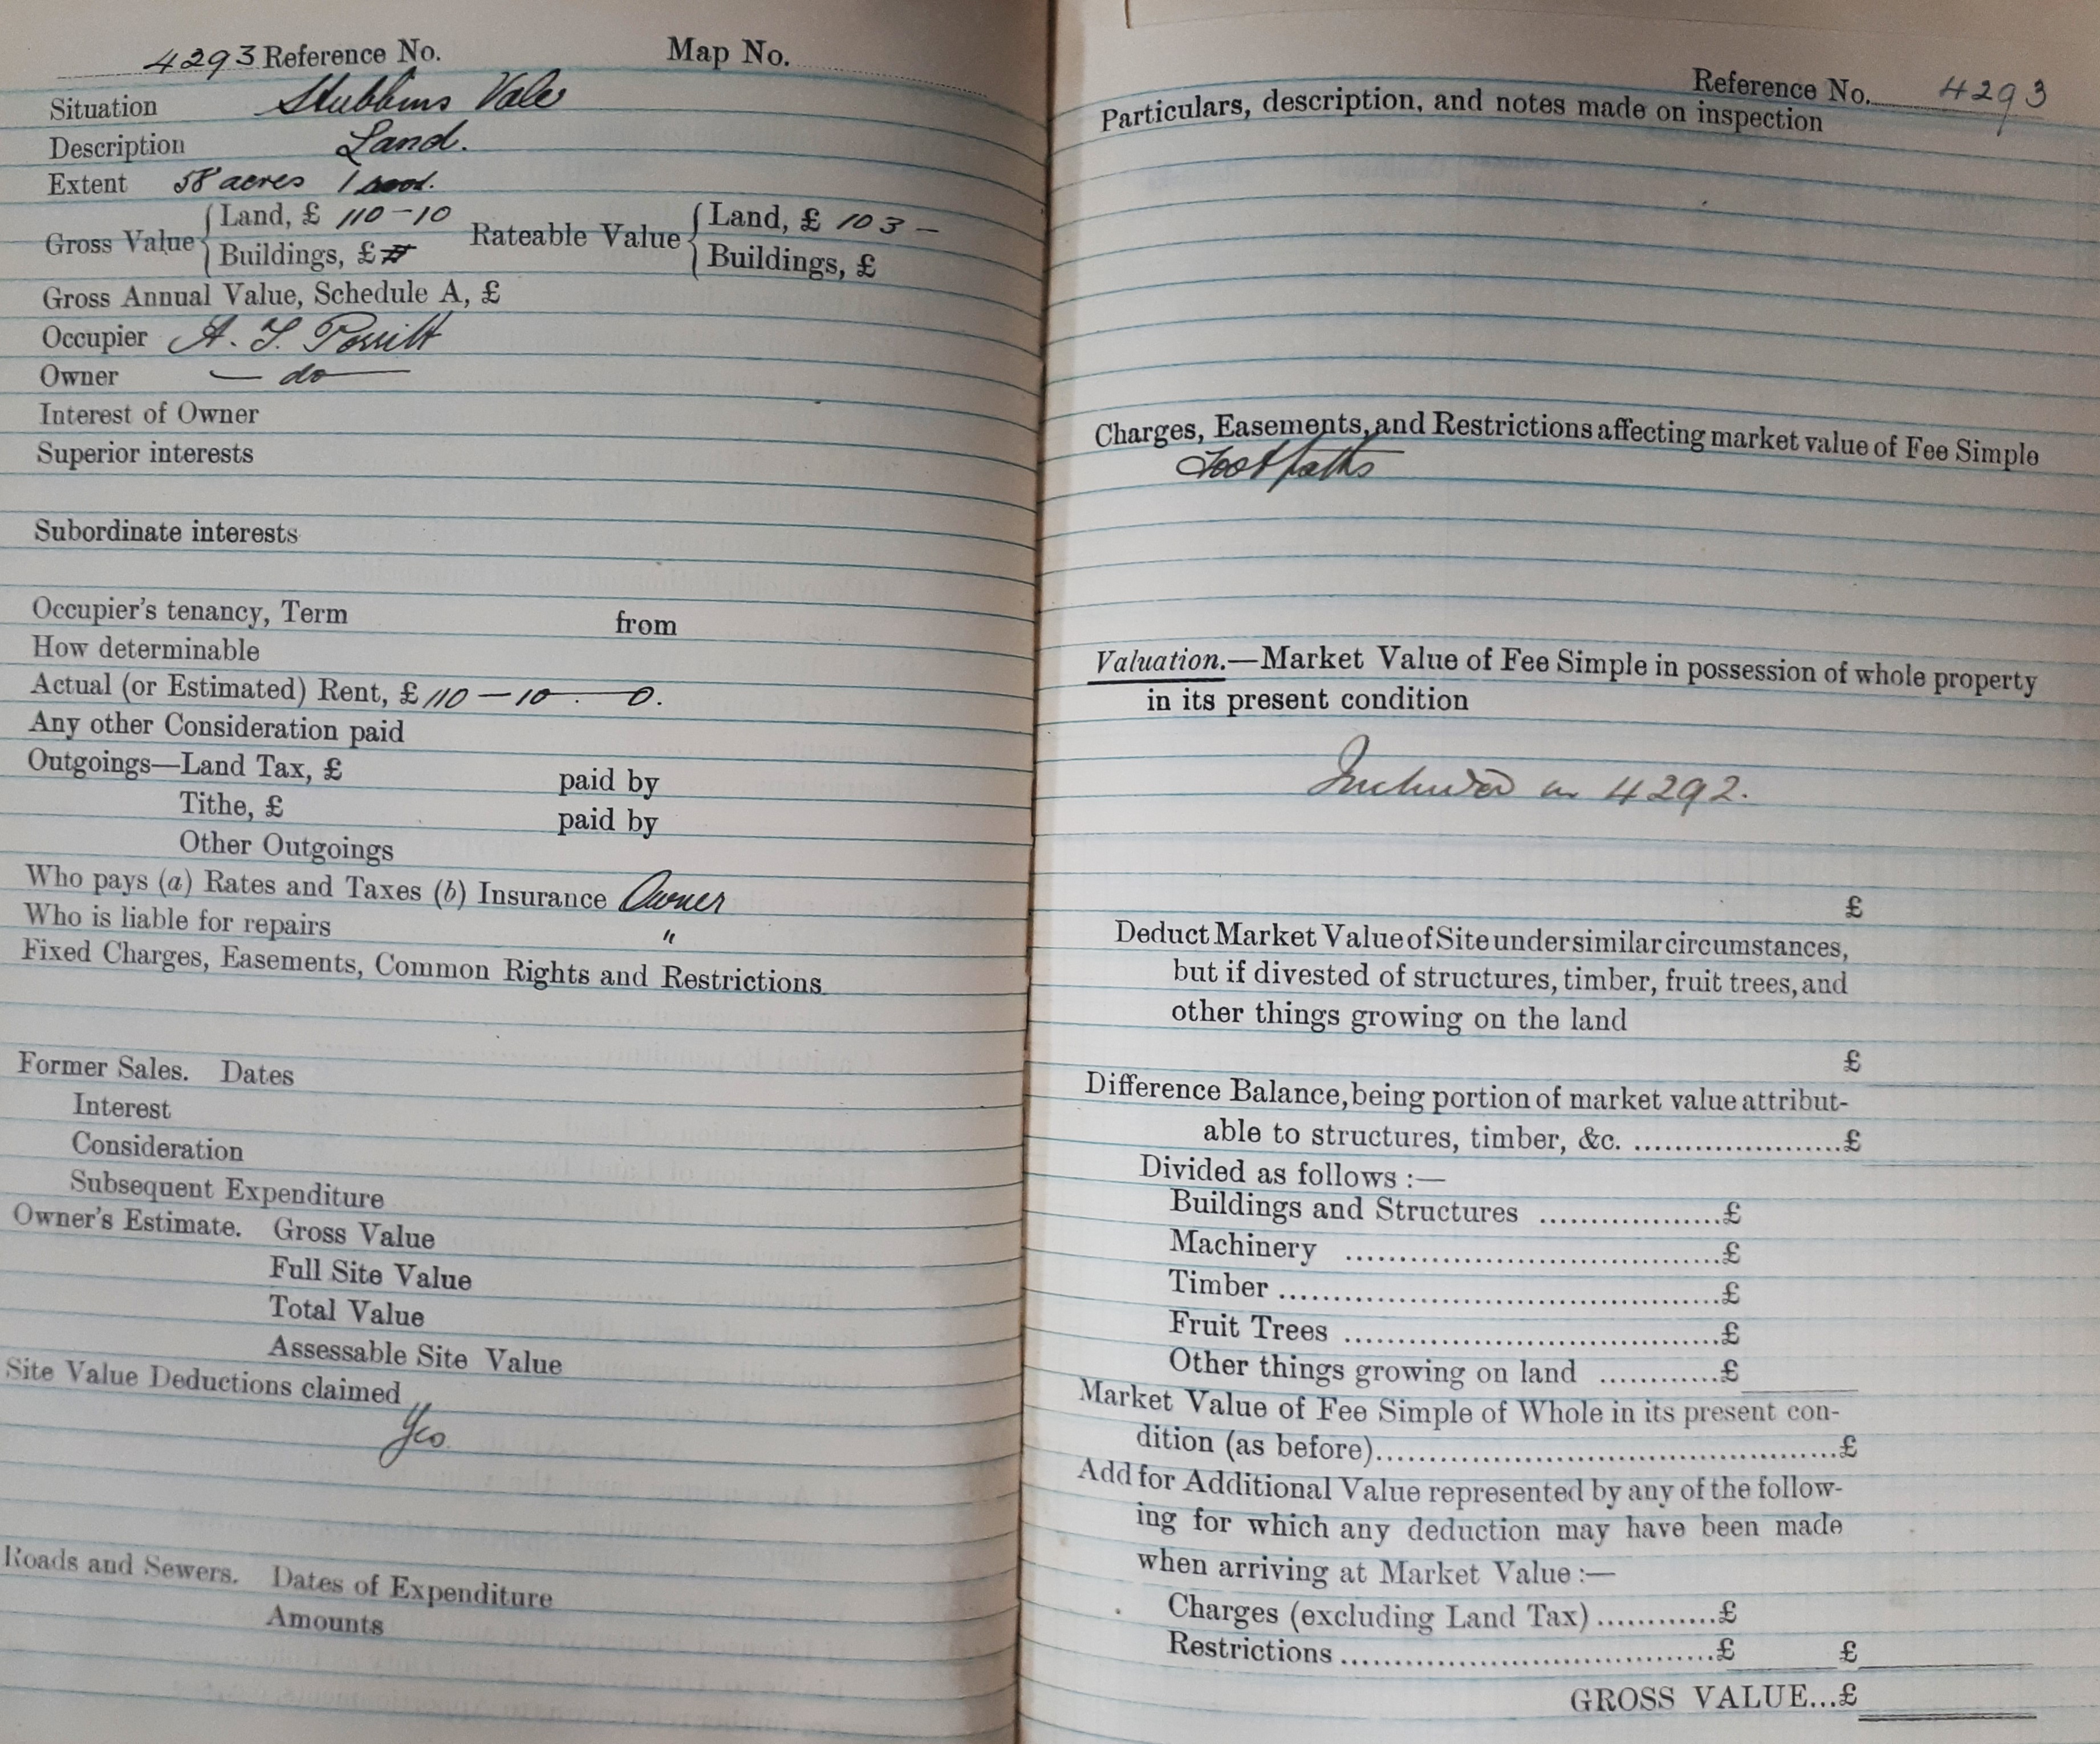 4293 Reference No. Map No.
Situation Stubbins Vale
Description Land.
Extent 58 acres 1 rood.
Gross Value { Land, £ 110-10 Rateable Value { Land, £ 103 -
Buildings, £ Buildings, £
Gross Annual Value, Schedule A, £
Occupier A. T. Porritt
Owner — do —
Interest of Owner
Superior interests
Subordinate interests
Occupier's tenancy, Term from
How determinable
Actual (or Estimated) Rent, £ 110 — 10 — 0.
Any other Consideration paid
Outgoings—Land Tax, £ paid by
Tithe, £ paid by
Other Outgoings
Who pays (a) Rates and Taxes (b) Insurance Owner
Who is liable for repairs "
Fixed Charges, Easements, Common Rights and Restrictions
Former Sales. Dates
Interest
Consideration
Subsequent Expenditure
Owner's Estimate. Gross Value
Full Site Value
Total Value
Assessable Site Value
Site Value Deductions claimed
Yes
Roads and Sewers. Dates of Expenditure
Amounts
Reference No. 4293
Particulars, description, and notes made on inspection
Charges, Easements, and Restrictions affecting market value of Fee Simple
Footpaths
Valuation.—Market Value of Fee Simple in possession of whole property
in its present condition
Included in 4292.
£
Deduct Market Value of Site under similar circumstances,
but if divested of structures, timber, fruit trees, and
other things growing on the land
£
Difference Balance, being portion of market value attribut-
able to structures, timber, &c. ......................£
Divided as follows :—
Buildings and Structures ...................£
Machinery .......................................£
Timber ..............................................£
Fruit Trees .......................................£
Other things growing on land ............£
Market Value of Fee Simple of Whole in its present con-
dition (as before)..............................................£
Add for Additional Value represented by any of the follow-
ing for which any deduction may have been made
when arriving at Market Value :—
Charges (excluding Land Tax) ............£
Restrictions .....................................£ £
GROSS VALUE...£